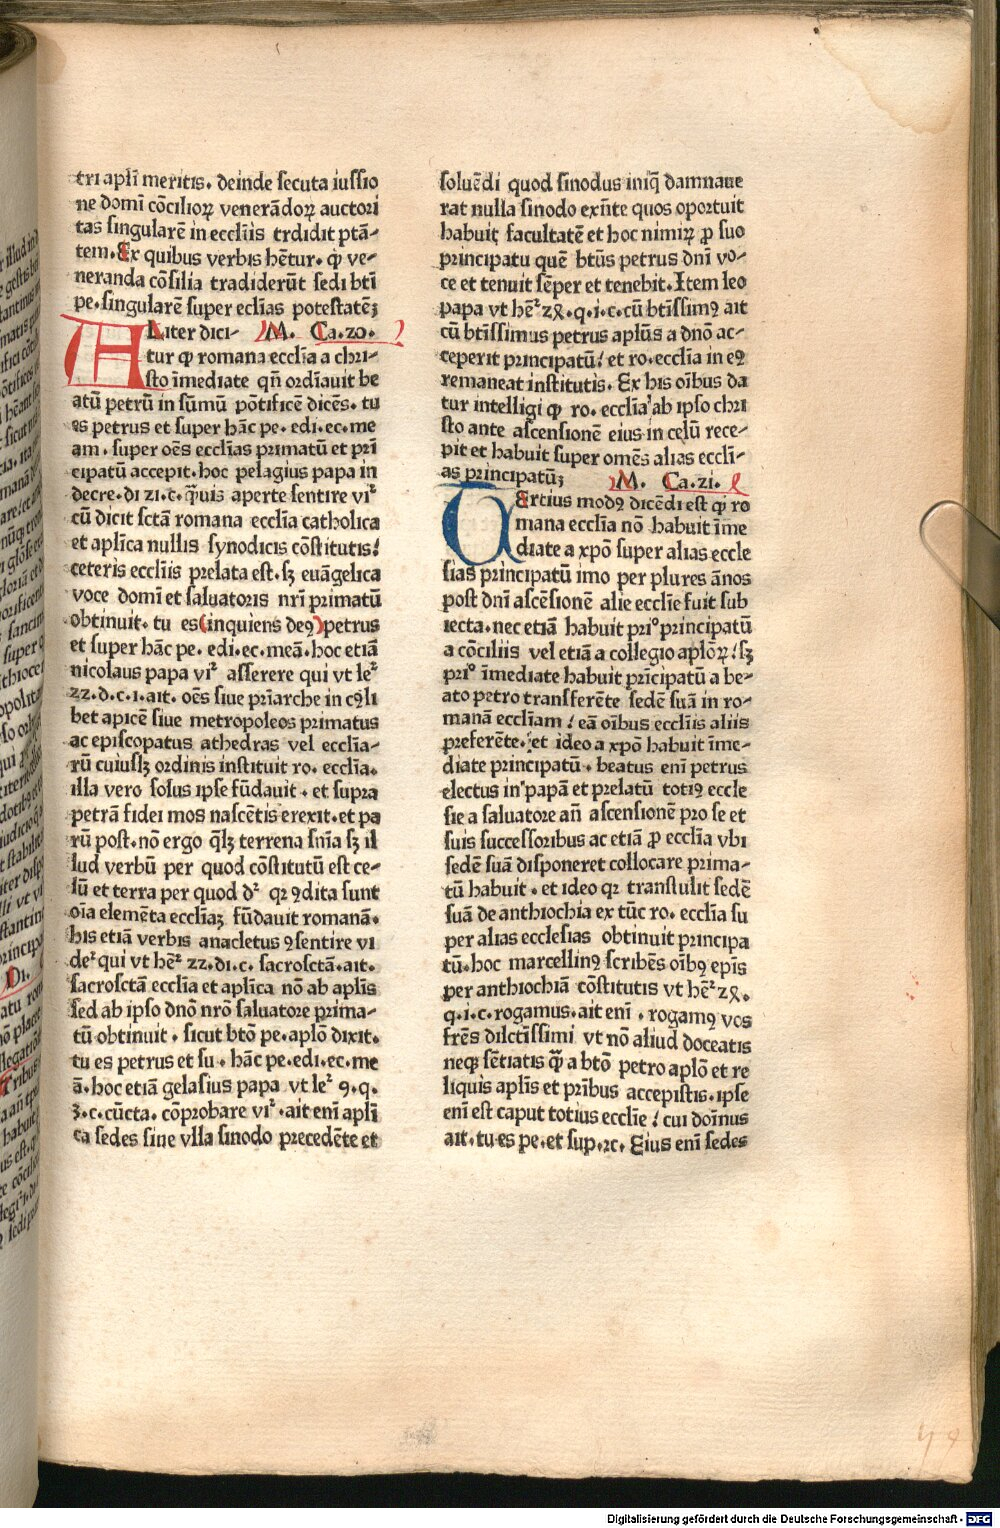 tri apl̄i meritis. deinde secuta iussio
ne domī cōcilioꝝ venerādoꝝ auctori
tas singularē in eccl̄iis trdidit ptā-
tem. Ex quibus verbis hētur. ꝙ ve-
neranda cōsilia tradiderūt sedi btī
pe. singularē super ecl̄ias potestatēꝫ
Liter dici- M. Ca. zo.
A tur ꝙ romana eccl̄ia a chri-
sto īmediate qn̄ ordīauit be
atū petrū in sūmū pōtificē dicēs. tu
es petrus et super hāc pe. edi. ec. me
am. super oēs eccl̄ias primatū et prī
cipatū accepit. hoc pelagius papa in
decre. di zi. c. q̄uis aperte sentire viᵗ
cū dicit sctā romana eccl̄ia catholica
et apl̄ica nullis synodicis cōstitutis:
ceteris eccl̄iis prelata est. sꝫ euāgelica
voce domī et saluatoris nrī primatū
obtinuit. tu es (inquiens deꝯ) petrus
et super hāc pe. edi. ec. meā. hoc etiā
nicolaus papa viᵗ asserere qui vt leᵗ
zz. d. c. i. ait. oēs siue prīarche in cꝯli
bet apicē siue metropoleos primatus
ac episcopatus athedras vel eccl̄ia-
rū cuiuslꝫ ordinis instituit ro. eccl̄ia.
illa vero solus ipse fūdauit. et supra
petrā fidei mos nascētis erexit. et pa
rū post. nō ergo q̄lꝫ terrena sn̄ia sꝫ il
lud verbū per quod cōstitutū est ce-
lū et terra per quod dᵗ qꝛ ꝯdita sunt
oīa elemēta eccl̄iaꝫ fūdauit romanā.
his etiā verbis anacletus ꝯsentire vi
deᵗ qui vt hēᵗ zz. di. c. sacrosctā. ait.
sacrosctā eccl̄ia et apl̄ica nō ab apl̄is
sed ab ipso dn̄o nrō saluatore prima-
tū obtinuit. sicut btō pe. apl̄o dixit.
tu es petrus et su. hāc pe. edi. ec. me
ā. hoc etiā gelasius papa vt leᵗ 9. q.
3. c. cūcta. cōprobare viᵗ. ait enī apl̄i
ca sedes sine vlla sinodo precedēte et
soluēdi quod sinodus iniq̄ damnaue
rat nulla sinodo exn̄te quos oportuit
habuit facultatē et hoc nimiꝝ ꝓ suo
principatu quē btūs petrus dn̄i vo-
ce et tenuit sēper et tenebit. Item leo
papa vt hēᵗ zꝝ. q. i. c. cū btīssimꝯ ait
cū btīssimus petrus apl̄us a dn̄o ac-
ceperit principatū: et ro. eccl̄ia in eꝯ
remaneat institutis. Ex his oībus da
tur intelligi ꝙ ro. eccl̄ia ab ipso chri
sto ante ascensionē eius in celū rece-
pit et habuit super omēs alias eccl̄i-
as principatūꝫ M. Ca. zi.
T Ertius modꝯ dicēdi est ꝙ ro
mana eccl̄ia nō habuit īme
diate a xp̄o super alias eccle
sias principatū imo per plures ānos
post dn̄i ascēsionē alie eccl̄ie fuit sub
iecta. nec etiā habuit priᵒ principatū
a cōciliis vel etiā a collegio apl̄oꝝ: sꝫ
priᵒ īmediate habuit prīcipatū a be-
ato petro transferēte sedē suā in ro-
manā eccl̄iam: eā oībus eccl̄iis aliis
preferēte. et ideo a xp̄o habuit īme-
diate principatū. beatus enī petrus
electus in papā et prelatū totiꝯ eccle
sie a saluatore an̄ ascensionē pro se et
suis successoribus ac etiā ꝓ eccl̄ia vbi
sedē suā disponeret collocare prima-
tū habuit. et ideo qꝛ transtulit sedē
suā de anthiochia ex tūc ro. eccl̄ia su
per alias ecclesias obtinuit principa
tū. hoc marcellinꝯ scribēs oībꝯ ep̄is
per anthiochiā cōstitutis vt hēᵗ zꝝ.
q. i. c. rogamus. ait enī. rogamꝯ vos
frēs dilctīssimi vt nō aliud doceatis
neqꝫ sētiatis q̄ꝫ a btō petro apl̄o et re
liquis apl̄is et prībus accepistis. ipse
enī est caput totius eccl̄ie: cui doīnus
ait. tu es pe. et sup. ⁊c. Eius enī sedes
Digitalisierung gefördert durch die Deutsche Forschungsgemeinschaft - DFG